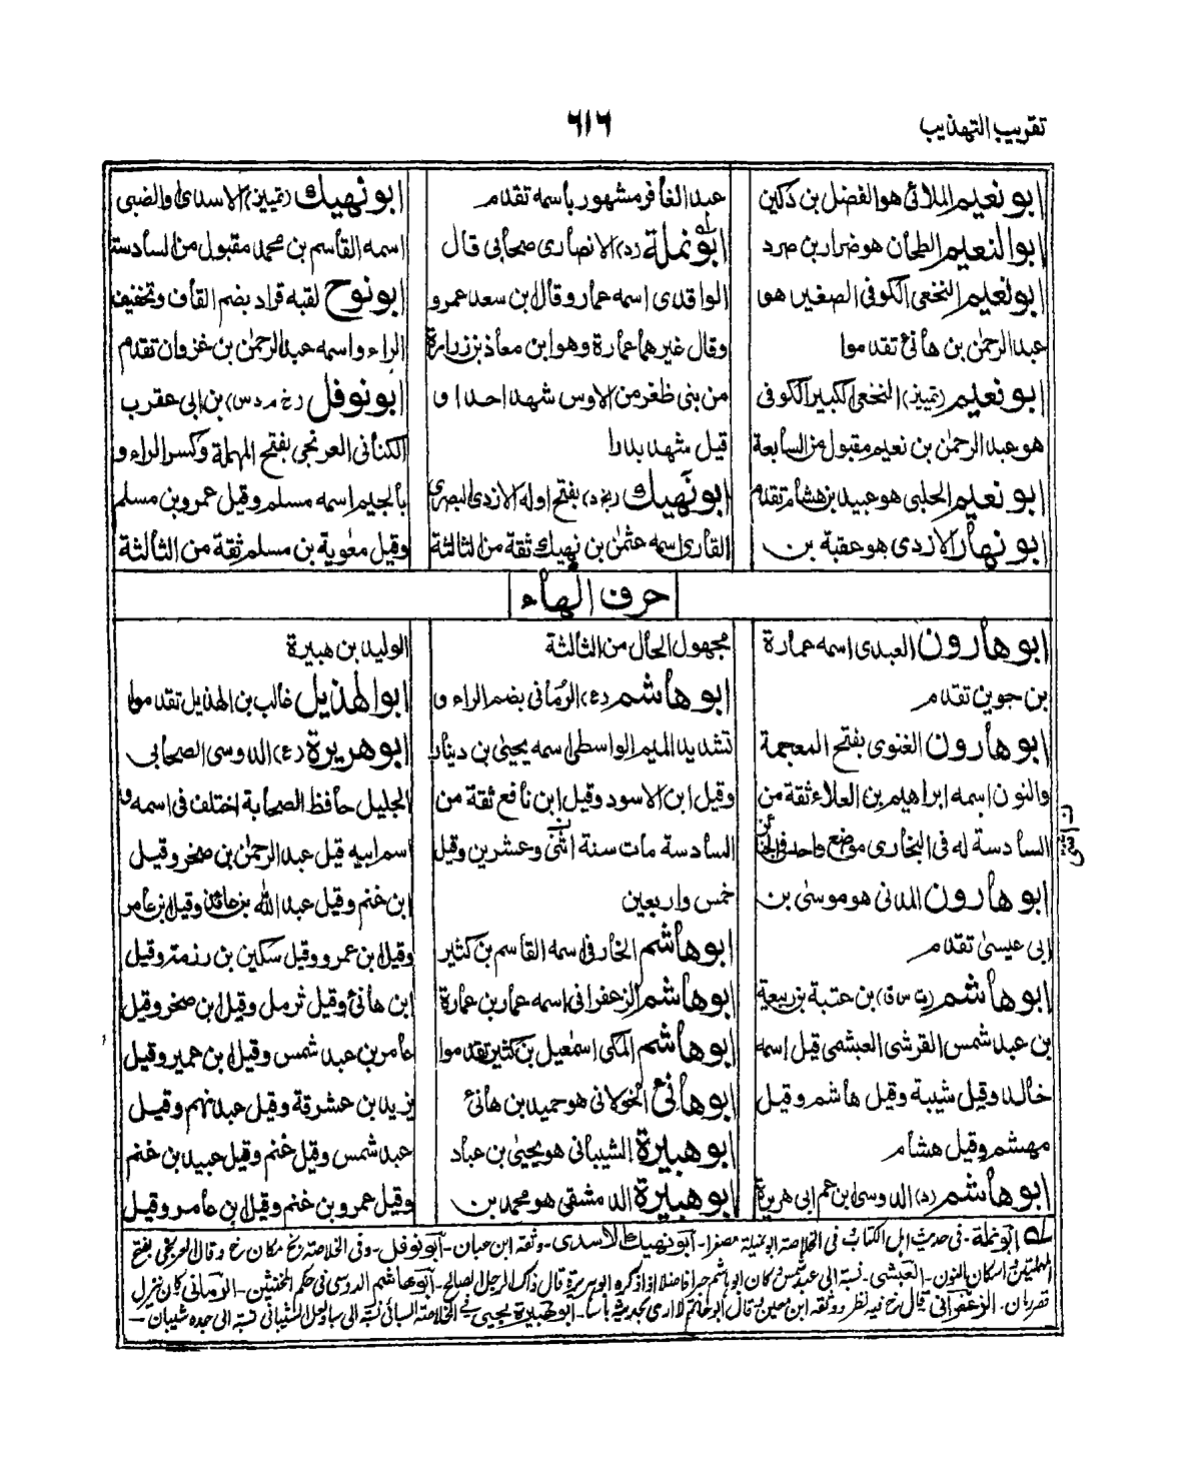 تقريب التهذيب
٦١٦
ابو نعيم الملائي هو الفضل بن دكين
ابو النعيم الطحان هو ضرار بن صرد
ابو نعيم النخعي الكوفي الصغير هو
عبد الرحمٰن بن هانئ تقدموا
ابو نعيم (تمييز) النخعي الكبير الكوفي
هو عبد الرحمٰن بن نعيم مقبول من السابعة
ابو نعيم الحلبي هو عبيد بن هشام تقدم
ابو نهار الازدي هو عقبة بن
عبد الغافر مشهور باسمه تقدم
ابو نملة (د) الانصاري صحابي قال
الواقدي اسمه عمار وقال ابن سعد عمرو
وقال غيرهما عمارة وهو ابن معاذ بن زرارة
من بني ظفر من الاوس شهد احدا و
قيل شهد بدرا
ابو نهيك (بخ د) بفتح اوله الازدي البصري
القاري اسمه عثمٰن بن نهيك ثقة من الثالثة
ابو نهيك (تمييز) الاسدي والضبي
اسمه القاسم بن محمد مقبول من السادسة
ابو نوح لقبه قراد بضم القاف وتخفيف
الراء واسمه عبد الرحمٰن بن غزوان تقدم
ابو نوفل (خ م د س) بن ابي عقرب
الكناني العرنجي بفتح المهملة وكسر الراء و
بالجيم اسمه مسلم وقيل عمرو بن مسلم
وقيل معٰوية بن مسلم ثقة من الثالثة
حرف الهاء
ابو هارون العبدي اسمه عمارة
بن جوين تقدم
ابو هارون الغنوي بفتح المعجمة
والنون اسمه ابراهيم بن العلاء ثقة من
السادسة له في البخاري موضع واحد في
ابو هارون المدني هو موسىٰ بن
ابي عيسىٰ تقدم
ابو هاشم (ت س ق) بن عتبة بن ربيعة
بن عبد شمس القرشي العبشمي قيل اسمه
خالد وقيل شيبة وقيل هاشم وقيل
مهشم وقيل هشام
ابو هاشم (د) الدوسي ابن عم ابي هريرة
مجهول الحال من الثالثة
ابو هاشم (ع) الرماني بضم الراء و
تشديد الميم الواسطي اسمه يحيىٰ بن دينار
وقيل ابن الاسود وقيل ابن نافع ثقة من
السادسة مات سنة اثنى وعشرين وقيل
خمس واربعين
ابو هاشم اسمه القاسم بن كثير
ابو هاشم الزعفراني اسمه عمار بن عمارة
ابو هاشم المكي اسمٰعيل بن كثير تقدموا
ابو هانئ الخولاني هو حميد بن هانئ
ابو هبيرة الشيباني هو يحيىٰ بن عباد
ابو هبيرة الدمشقي هو محمد بن
الوليد بن هبيرة
ابو الهذيل غالب بن الهذيل تقدموا
ابو هريرة (ع) الدوسي الصحابي
الجليل حافظ الصحابة اختلف في اسمه و
اسم ابيه قيل عبد الرحمٰن بن صخر وقيل
ابن غنم وقيل عبد الله بن عائذ وقيل ابن عامر
وقيل ابن عمرو وقيل سكين بن رزمة وقيل
ابن هانئ وقيل ثرمل وقيل ابن صخر وقيل
عامر بن عبد شمس وقيل ابن عمير وقيل
يزيد بن عشرقة وقيل عبد نهم وقيل
عبد شمس وقيل غنم وقيل عبيد بن غنم
وقيل عمرو بن غنم وقيل ابن عامر وقيل
ابو نملة - في حديث اہل الكتاب في الخلاصة ابو نميلة مصغرا - ابو نهيك الاسدي - وثقه ابن حبان - ابو نوفل - وفي الخلاصة بخ مكان خ وقال العريجي بفتح
المهملتين واسكان النون - العبشمي - نسبة الى عبد شمس وكان ابو ہاشم خيرا فاضلا اذا ذكره ابو ہريرة قال ذاك الرجل الصالح - ابو هاشم الدوسي في حكم المخنثين - الرماني كان ينزل
قصر رمان - الزعفراني قال خ فيه نظر ووثقه ابن معين وقال ابو حاتم لا ارى بحديثه باسا - ابو هبيرة يحيى في الخلاصة الشيباني نسبة الى جده شيبان -